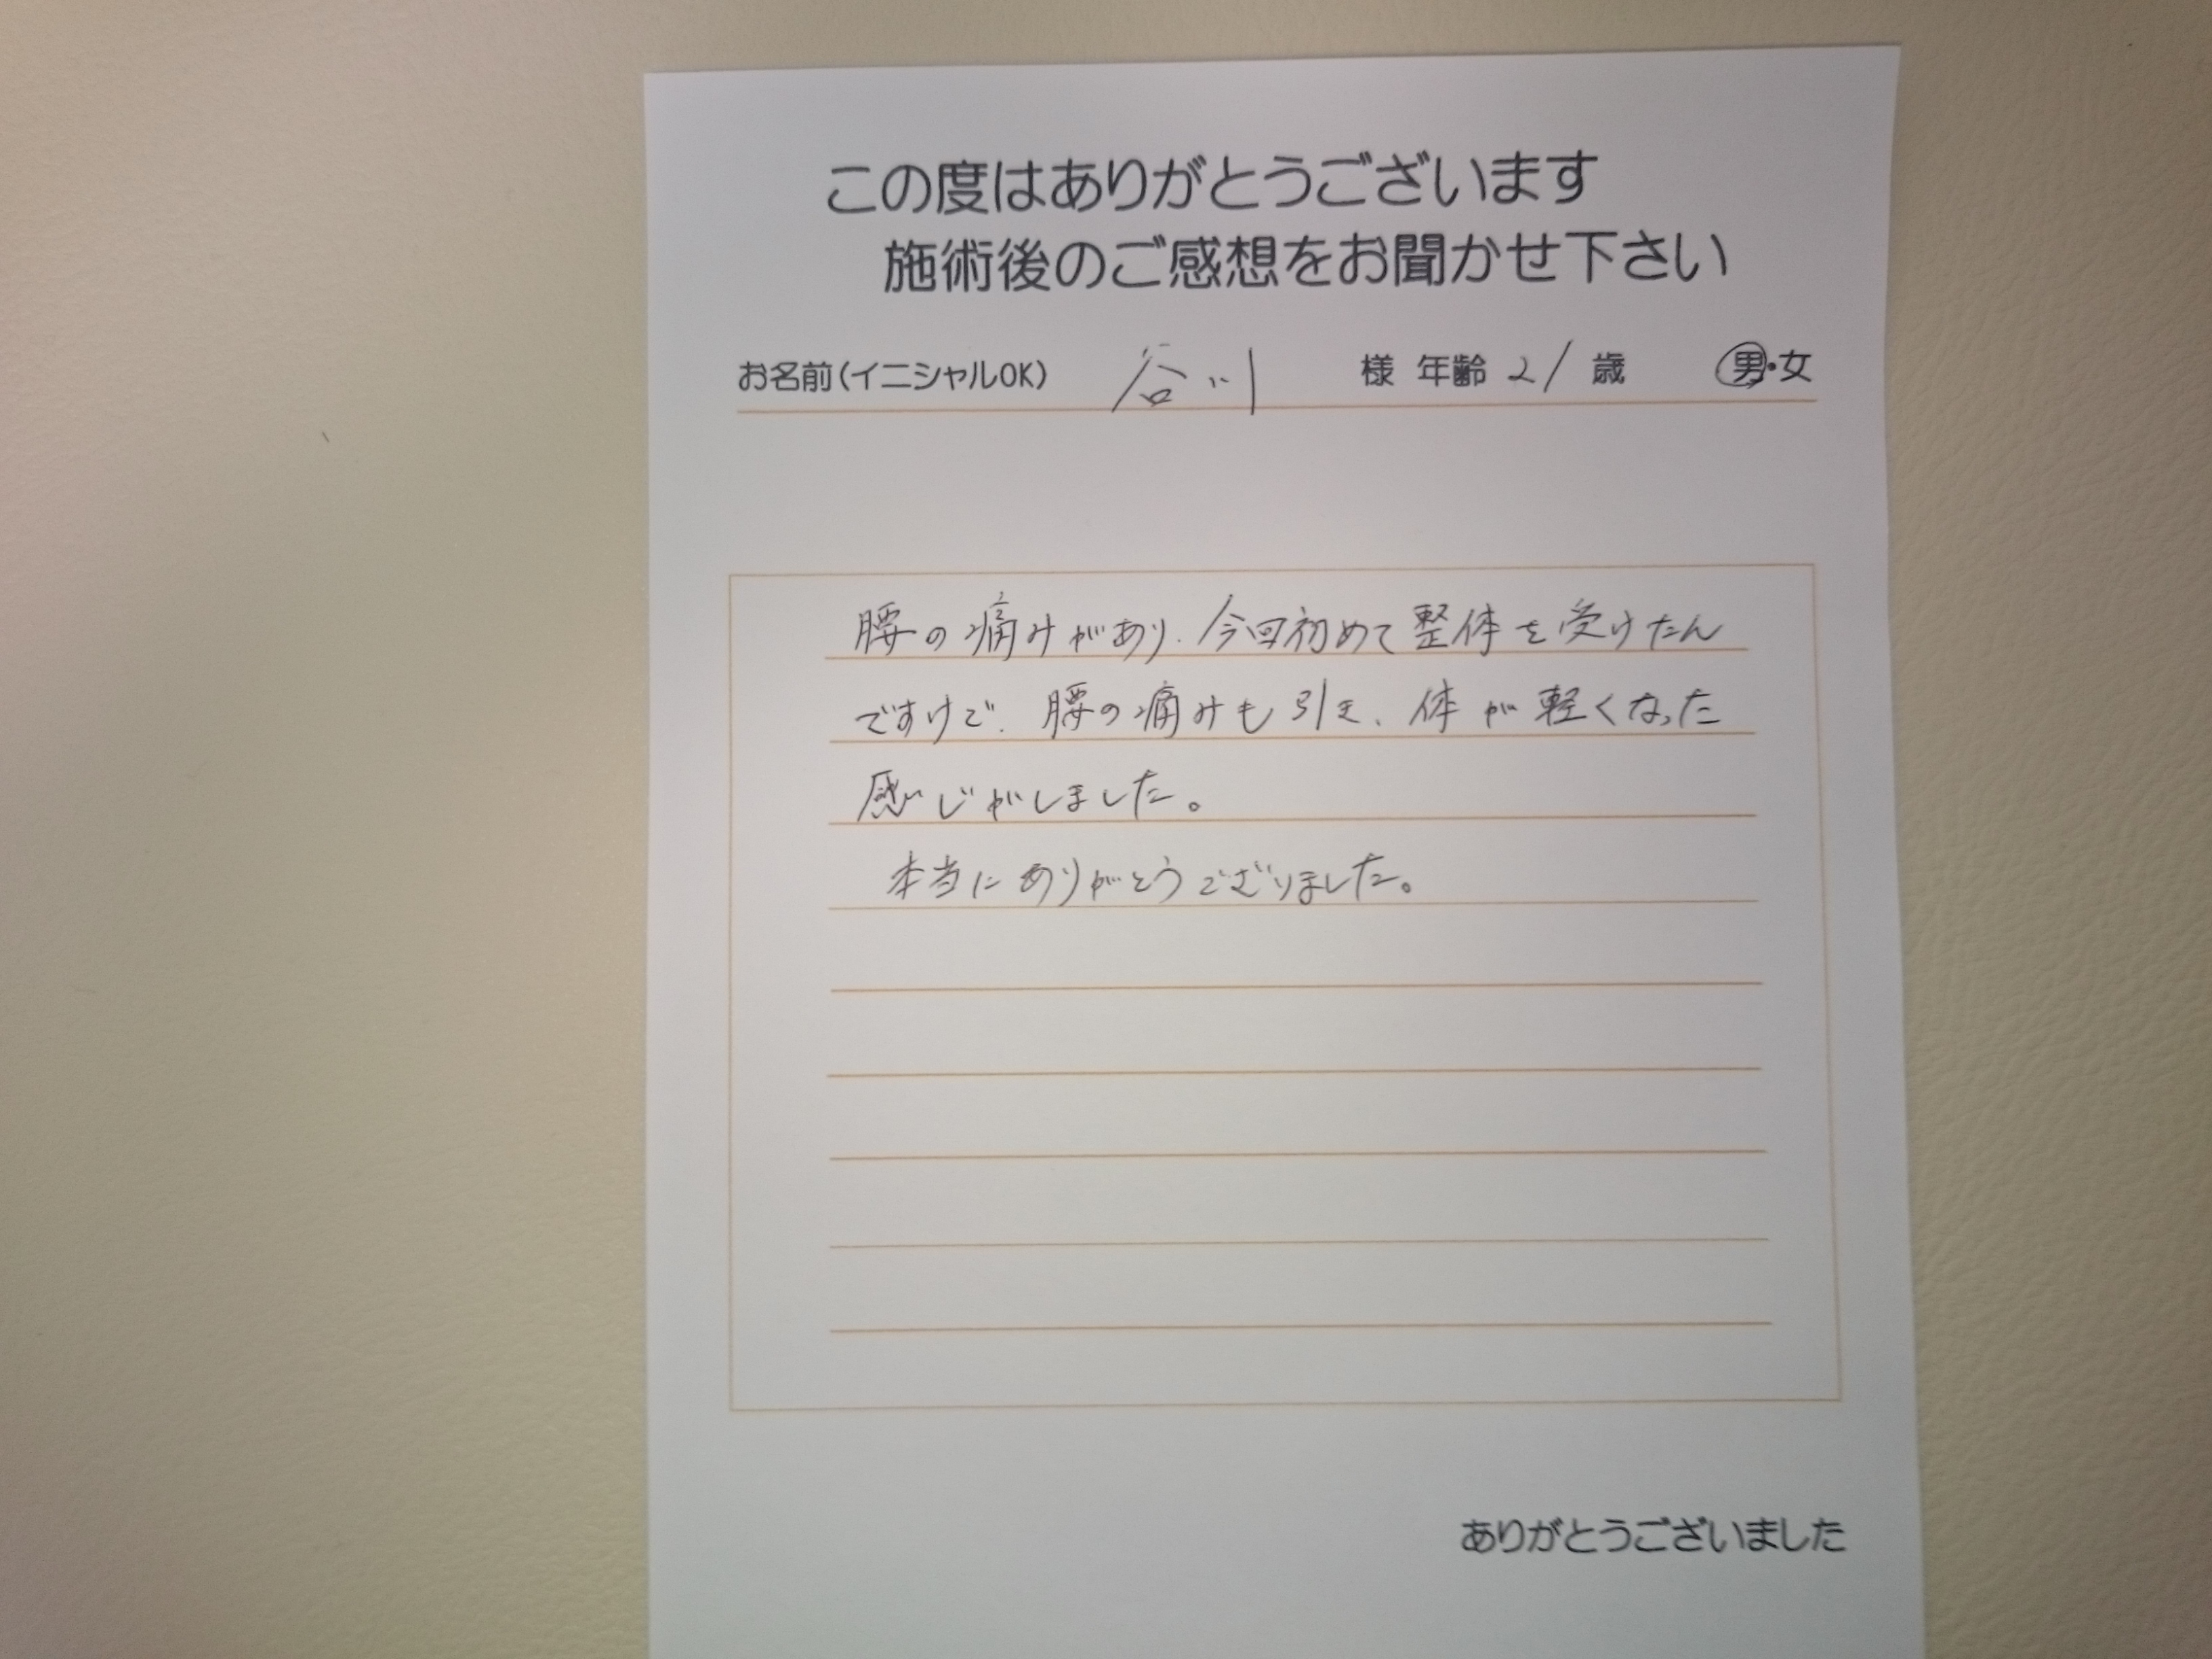 この度はありがとうございます
施術後のご感想をお聞かせ下さい
お名前(イニシャルOK) 谷川 様 年齢 21 歳 男・女
腰の痛みがあり、今回初めて整体を受けたん
ですけど、腰の痛みも引き、体が軽くなった
感じがしました。
本当にありがとうございました。
ありがとうございました